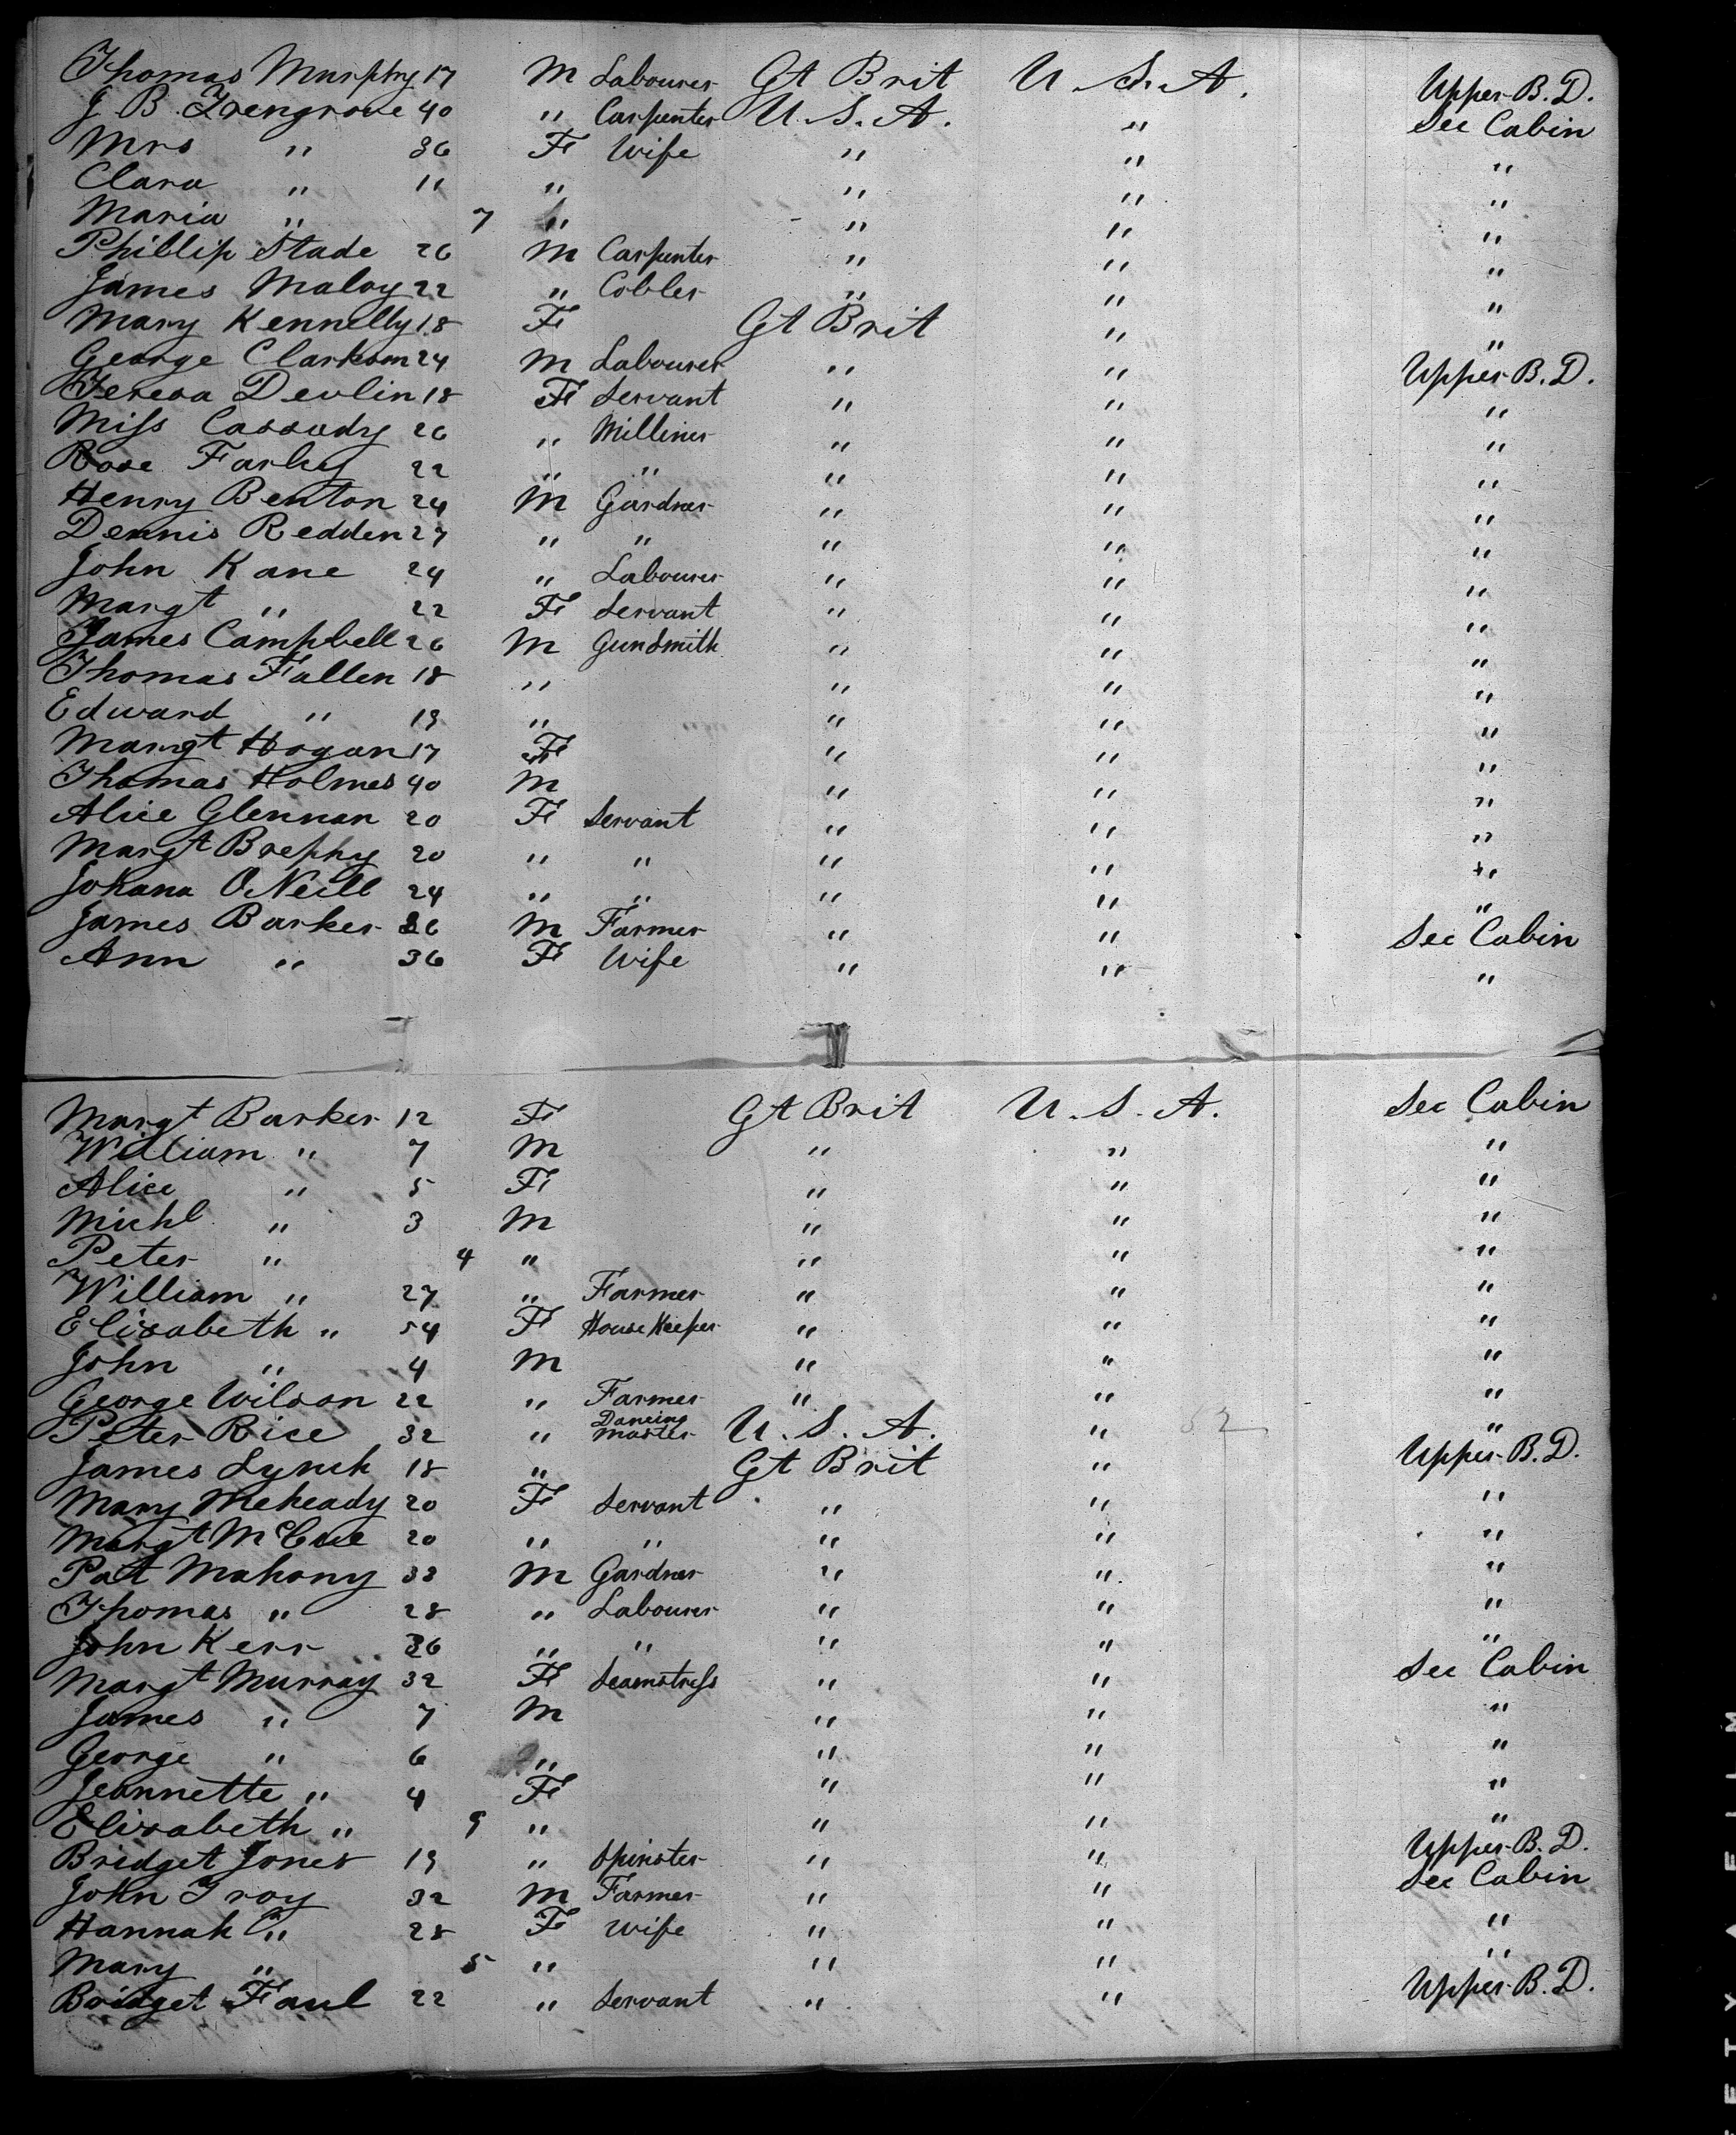 Thomas Murphy 17 M Labourer Gt Brit U.S.A. Upper B.D.
J B Trengrove 40 " Carpenter U.S.A. " Sec Cabin
Mrs " 36 F Wife " " "
Clara " 11 " " " "
Maria " 7 " " " "
Phillip Stade 26 M Carpenter " " "
James Maloy 22 " Cobler " " "
Mary Kennelly 18 F Gt Brit " "
George Clarkson 24 M Labourer " " Upper B.D.
Teresa Devlin 18 F Servant " " "
Miss Cassudy 26 " Milliner " " "
Rose Farley 22 " " " " "
Henry Benton 24 M Gardner " " "
Dennis Redden 27 " " " " "
John Kane 24 " Labourer " " "
Margt " 22 F Servant " " "
James Campbell 26 M Gunsmith " " "
Thomas Fallen 18 " " " "
Edward " 19 " " " "
Margt Hogan 17 F " " "
Thomas Holmes 40 M " " "
Alice Glennan 20 F Servant " " "
Margt Brephy 20 " " " " "
Johana O'Neill 24 " " " " "
James Barker 36 M Farmer " " Sec Cabin
Ann " 36 F Wife " " "
Margt Barker 12 F Gt Brit U.S.A. Sec Cabin
William " 7 M " " "
Alice " 5 F " " "
Michl " 3 M " " "
Peter " 4 " " " "
William " 27 " Farmer " " "
Elisabeth " 54 F House Keeper " " "
John " 4 M " " "
George Wilson 22 " Farmer " " "
Peter Rice 32 " Dancing Master U.S.A. " 52 "
James Lynch 18 " Gt Brit " Upper B.D.
Mary Meheady 20 F Servant " " "
Margt McCue 20 " " " " "
Pat Mahony 33 M Gardner " " "
Thomas " 28 " Labourer " " "
John Kerr 36 " " " " "
Margt Murray 32 F Seamstress " " Sec Cabin
James " 7 M " " "
George " 6 " " " "
Jeannette " 4 F " " "
Elisabeth " 9 " " " "
Bridget Jones 19 " Spinster " " Upper B.D.
John Troy 32 M Farmer " " Sec Cabin
Hannah " 28 F Wife " " "
Mary " 5 " " " "
Bridget Faul 22 " Servant " " Upper B.D.